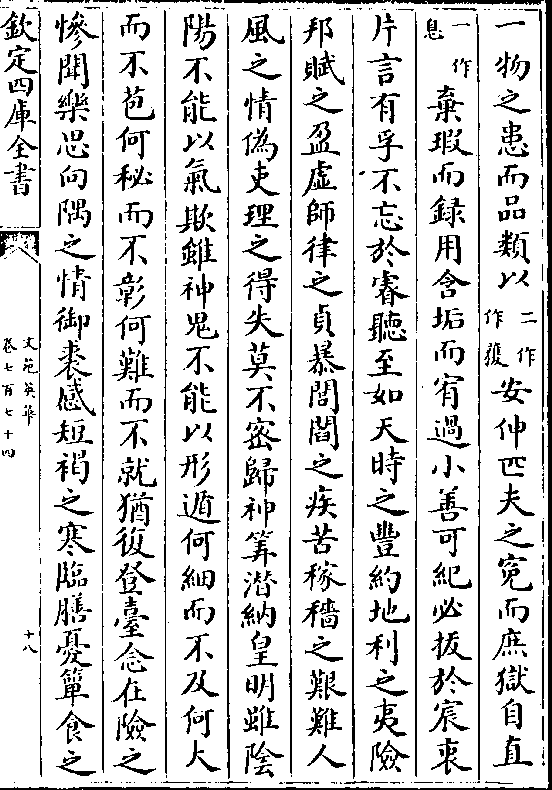 一物之患而品類以二作作獲安伸匹夫之寃而庶獄自直
一作息棄瑕而録用含垢而宥過小善可紀必拔於宸衷
片言有孚不忘於睿聽至如天時之豐約地利之夷險
邦賦之盈虛師律之貞暴閭閻之疾苦稼穡之艱難人
風之情偽吏理之得失莫不密歸神筭潜納皇明雖陰
陽不能以氣欺雖神鬼不能以形遁何細而不及何大
而不苞何秘而不彰何難而不就猶復登臺念在險之
慘聞樂思向隅之情御裘感短褐之寒臨膳憂簞食之
欽定四庫全書
文苑英華
卷七百七十四
十八